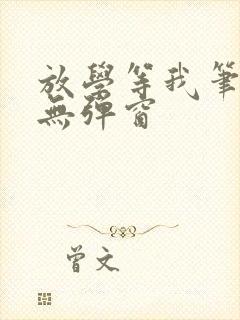 放學等我筆
無彈窗
曾文